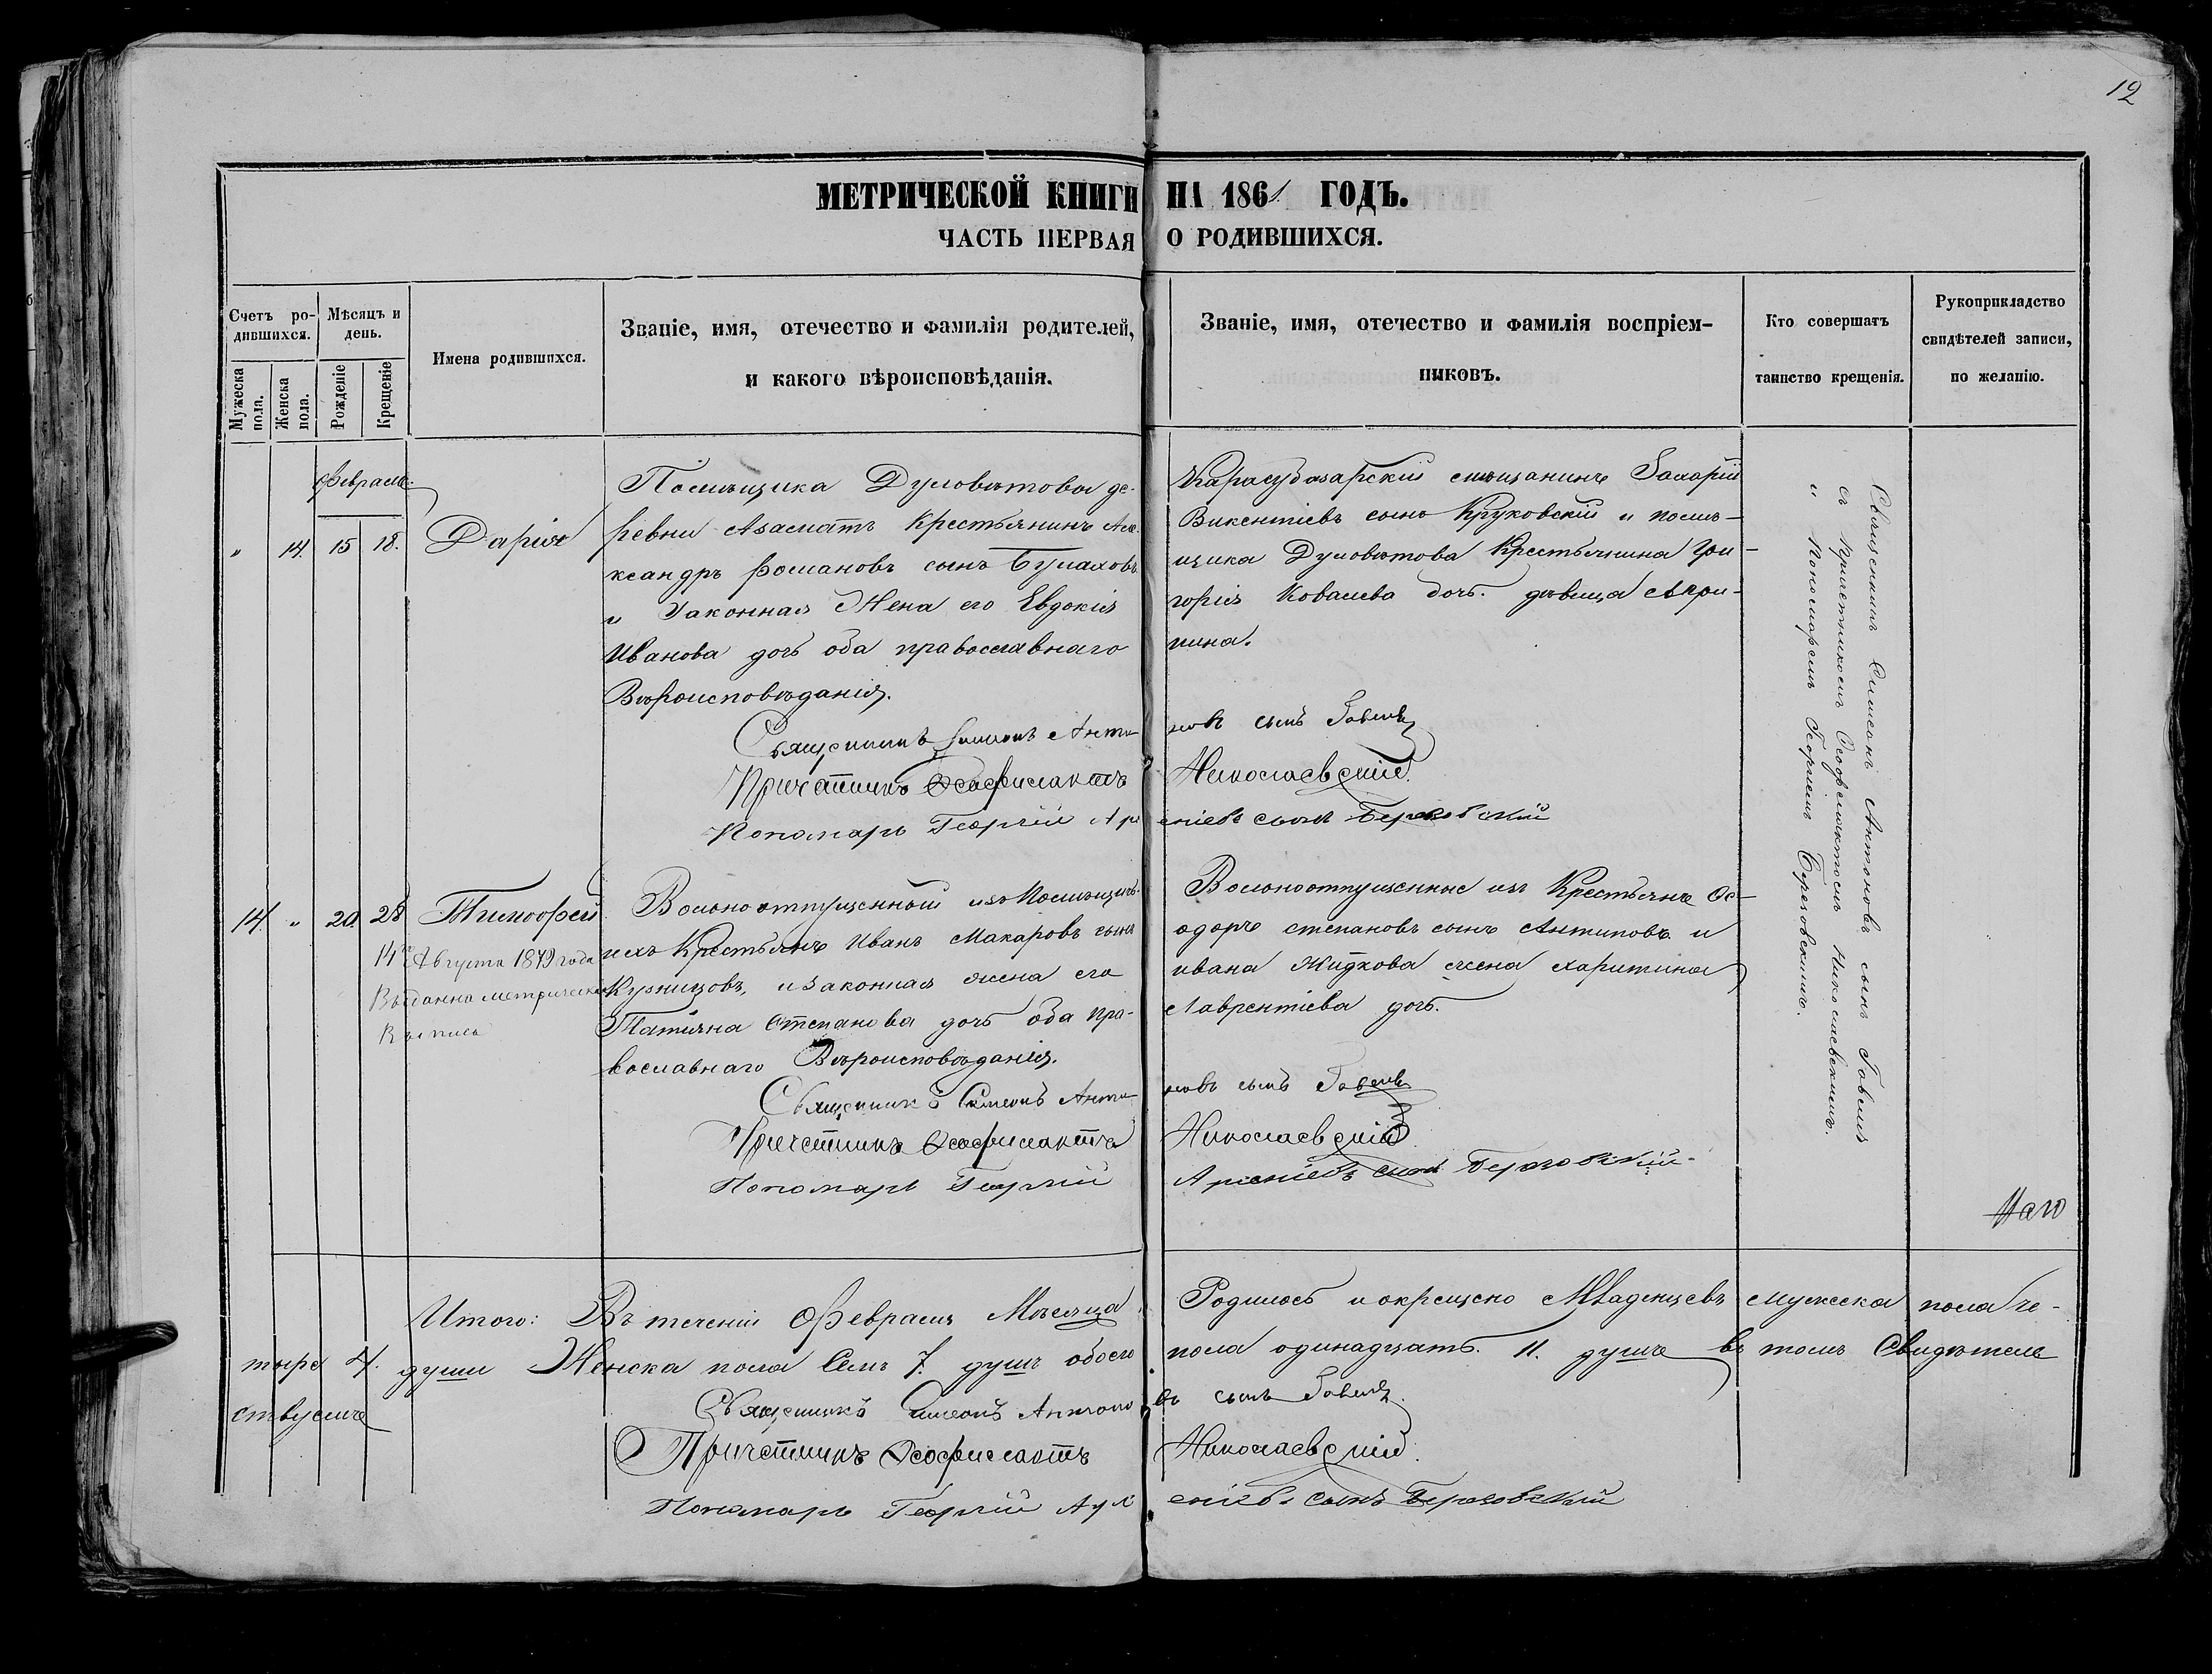 12
МЕТРИЧЕСКОЙ КНИГИ НА 1861 ГОДЪ.
ЧАСТЬ ПЕРВАЯ О РОДИВШИХСЯ.
Счетъ ро-
дившихся.
Мужеска
пола.
Женска
пола.
Мѣсяцъ и
день.
Рожденіе
Крещеніе
Имена родившихся.
Званіе, имя, отечество и фамилія родителей,
и какого вѣроисповѣданія.
Званіе, имя, отечество и фамилія воспріем-
никовъ.
Кто совершатъ
таинство крещенія.
Рукоприкладство
свидѣтелей записи,
по желанію.
Февраль.
" 14. 15 18. Дарія
Помѣщика Дуловѣтова де-
ревни Азаматъ Крестьянинъ Але-
ксандръ Романовъ сынъ Булаховъ
и Законная Жена его Евдокія
Иванова дочь оба православнаго
Вѣроисповѣданія.
Карасубазарскій мѣщанинъ Захарій
Викентіевъ сынъ Круковскій и помѣ-
щика Дуловѣтова Крестьянина Гри-
горія Ковалева дочь. дѣвица Агри-
пина.
Священникъ Симеонъ Анто новъ сынъ Говель
Причетникъ Феофилактъ Николаевскій
Пономарь Георгій Арсеніевъ сынъ Березовскій
Священникъ Симеонъ Антоновъ сынъ Говель
съ Причетникомъ Феофилактомъ Николаевскимъ.
и Пономаремъ Георгіемъ Березовскимъ.
14. " 20. 28 Тимофей
14го Августа 1879 года
Выданна метрическая
Выпись
Вольноотпущенный изъ Помѣщичь-
ихъ Крестьянъ Иванъ Макаровъ сынъ
Кузницовъ, и законная жена его
Татіяна Степанова дочь оба пра-
вославнаго Вѣроисповѣданія.
Вольноотпущенные изъ Крестьянъ Фе-
одоръ степановъ сынъ Антиповъ и
ивана Жидкова жена харитина
Лаврентіева дочь.
Священникъ Симеонъ Анто новъ сынъ Говель
Причетникъ Феофилактъ Николаевскій
Пономарь Георгій Арсеніевъ сынъ Березовскій
Итого: Въ теченіи Февраля Мѣсяца Родилось и окрещено Младенцевъ мужеска пола че-
тыре 4. души Женска пола Семь 7. душъ обоего пола одинадцать. 11. душъ въ томъ Свидѣтель
ствуемъ
Священникъ Симеонъ Антоно въ сынъ Говель
Причетникъ Феофилактъ Николаевскій
Пономарь Георгій Арсеніевъ сынъ Березовскій